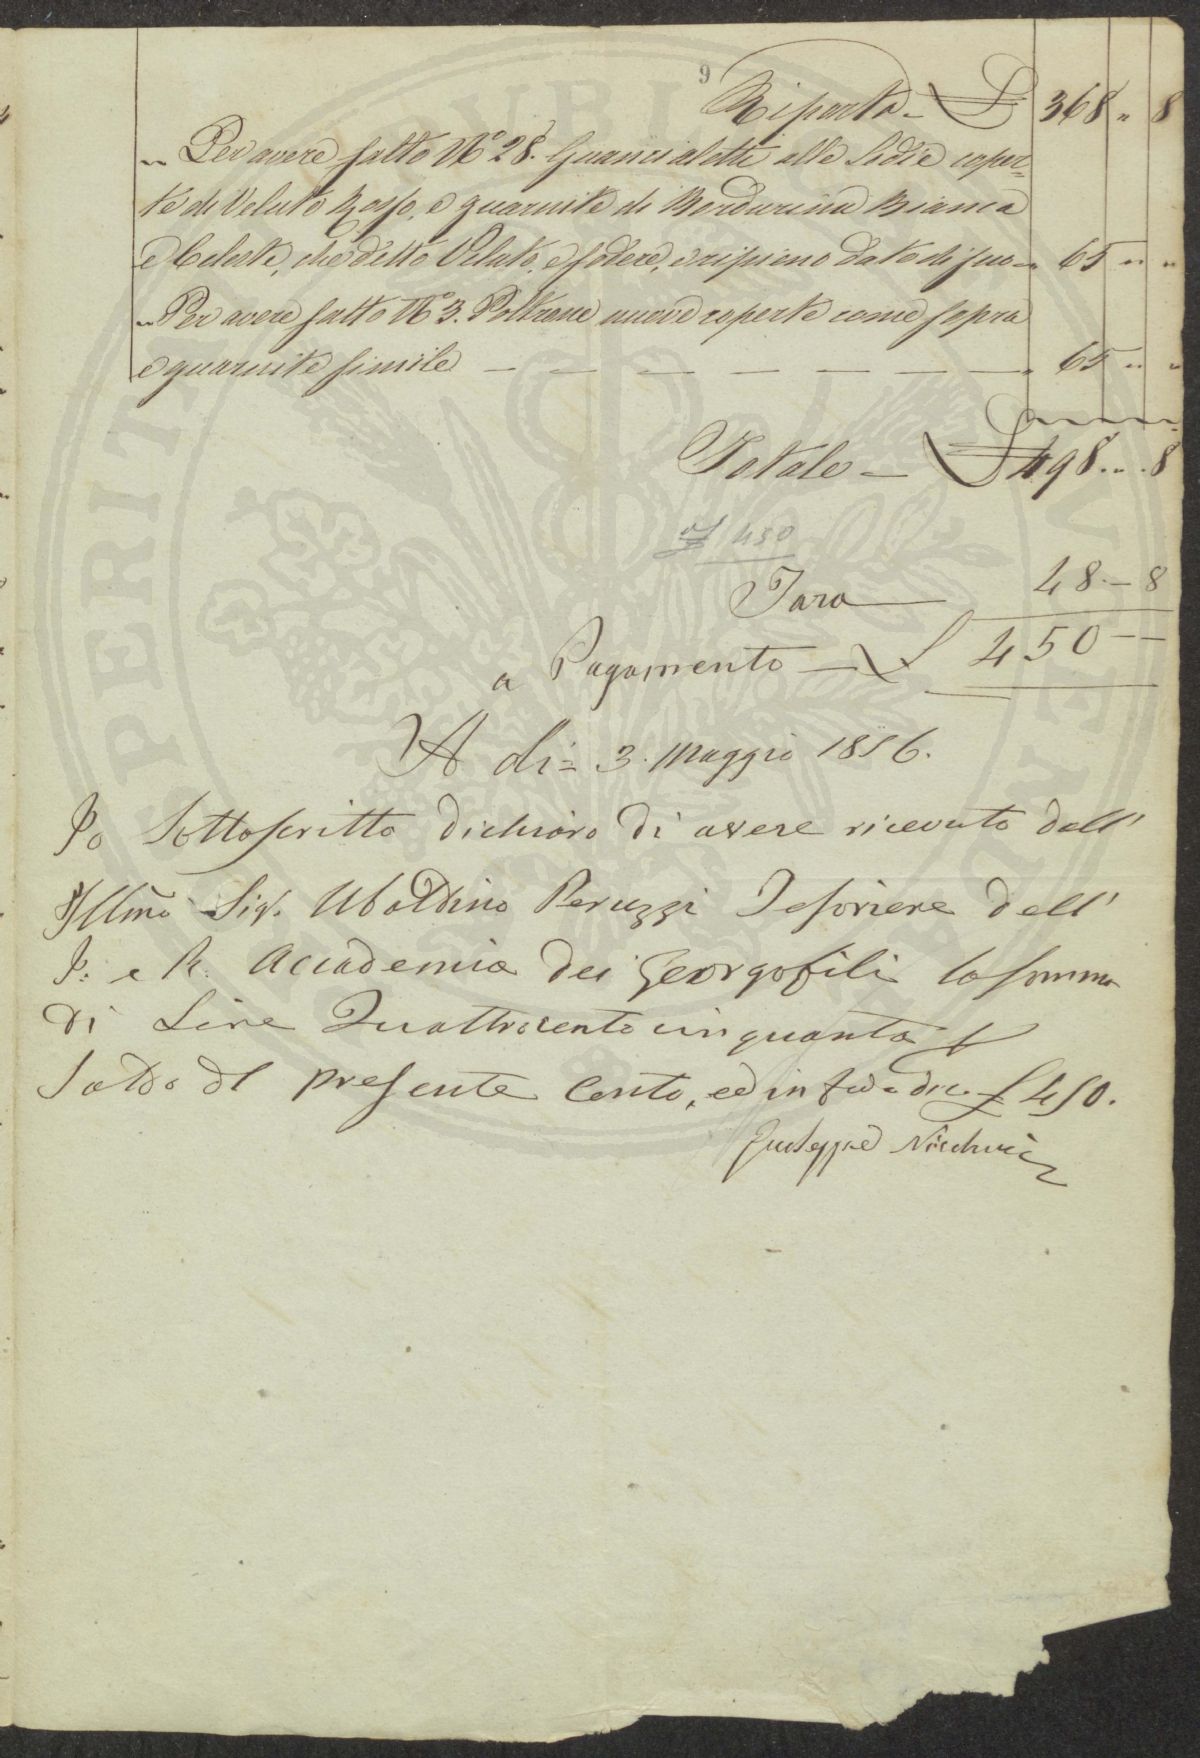 9
Riporto - £ 368 " 8
" Per avere fatto N.º 28. Guancialetti alle Sedie coper=
te di Veluto Rosso, e guarnite di Bordurina Bianca
e Celeste, che detto Veluto, e fodere, e ripieno dato di suo - " 65 " "
" Per avere fatto N.º 3. Poltrone nuove coperte come sopra
e guarnite simile — — — — — — — — " 65 " "
Totale — £ 498 .. .. 8
£ 450
Tara — 48 — 8
a Pagamento — £ 450 — —
A dì = 3. Maggio 1856.
Io Sottoscritto dichiaro di avere ricevuto dall'
Illmo Sig. Ubaldino Peruzzi Tesoriere dell'
I: e R: Accademia dei Georgofili la somma
di Lire Quattrocento cinquanta
Saldo del presente Conto, ed in fede dic. £ 450.
Giuseppe